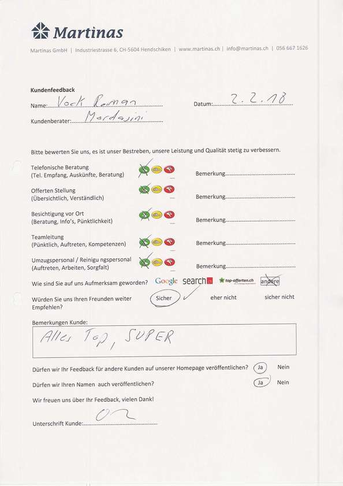 Martinas
Martinas GmbH | Industriestrasse 6, CH-5604 Hendschiken | www.martinas.ch | info@martinas.ch | 056 667 1626
Kundenfeedback
Name: Vock Roman Datum: 2.2.18
Kundenberater: Mardasini
Bitte bewerten Sie uns, es ist unser Bestreben, unsere Leistung und Qualität stetig zu verbessern.
Telefonische Beratung
(Tel. Empfang, Auskünfte, Beratung) Bemerkung
Offerten Stellung
(Übersichtlich, Verständlich) Bemerkung
Besichtigung vor Ort
(Beratung, Info's, Pünktlichkeit) Bemerkung
Teamleitung
(Pünktlich, Auftreten, Kompetenzen) Bemerkung
Umzugspersonal / Reinigungspersonal
(Auftreten, Arbeiten, Sorgfalt) Bemerkung
Wie sind Sie auf uns Aufmerksam geworden? Google search top-offerten.ch andere
Würden Sie uns Ihren Freunden weiter Sicher eher nicht sicher nicht
Empfehlen?
Bemerkungen Kunde:
Alles Top, SUPER
Dürfen wir Ihr Feedback für andere Kunden auf unserer Homepage veröffentlichen? Ja Nein
Dürfen wir Ihren Namen auch veröffentlichen? Ja Nein
Wir freuen uns über Ihr Feedback, vielen Dank!
Unterschrift Kunde: